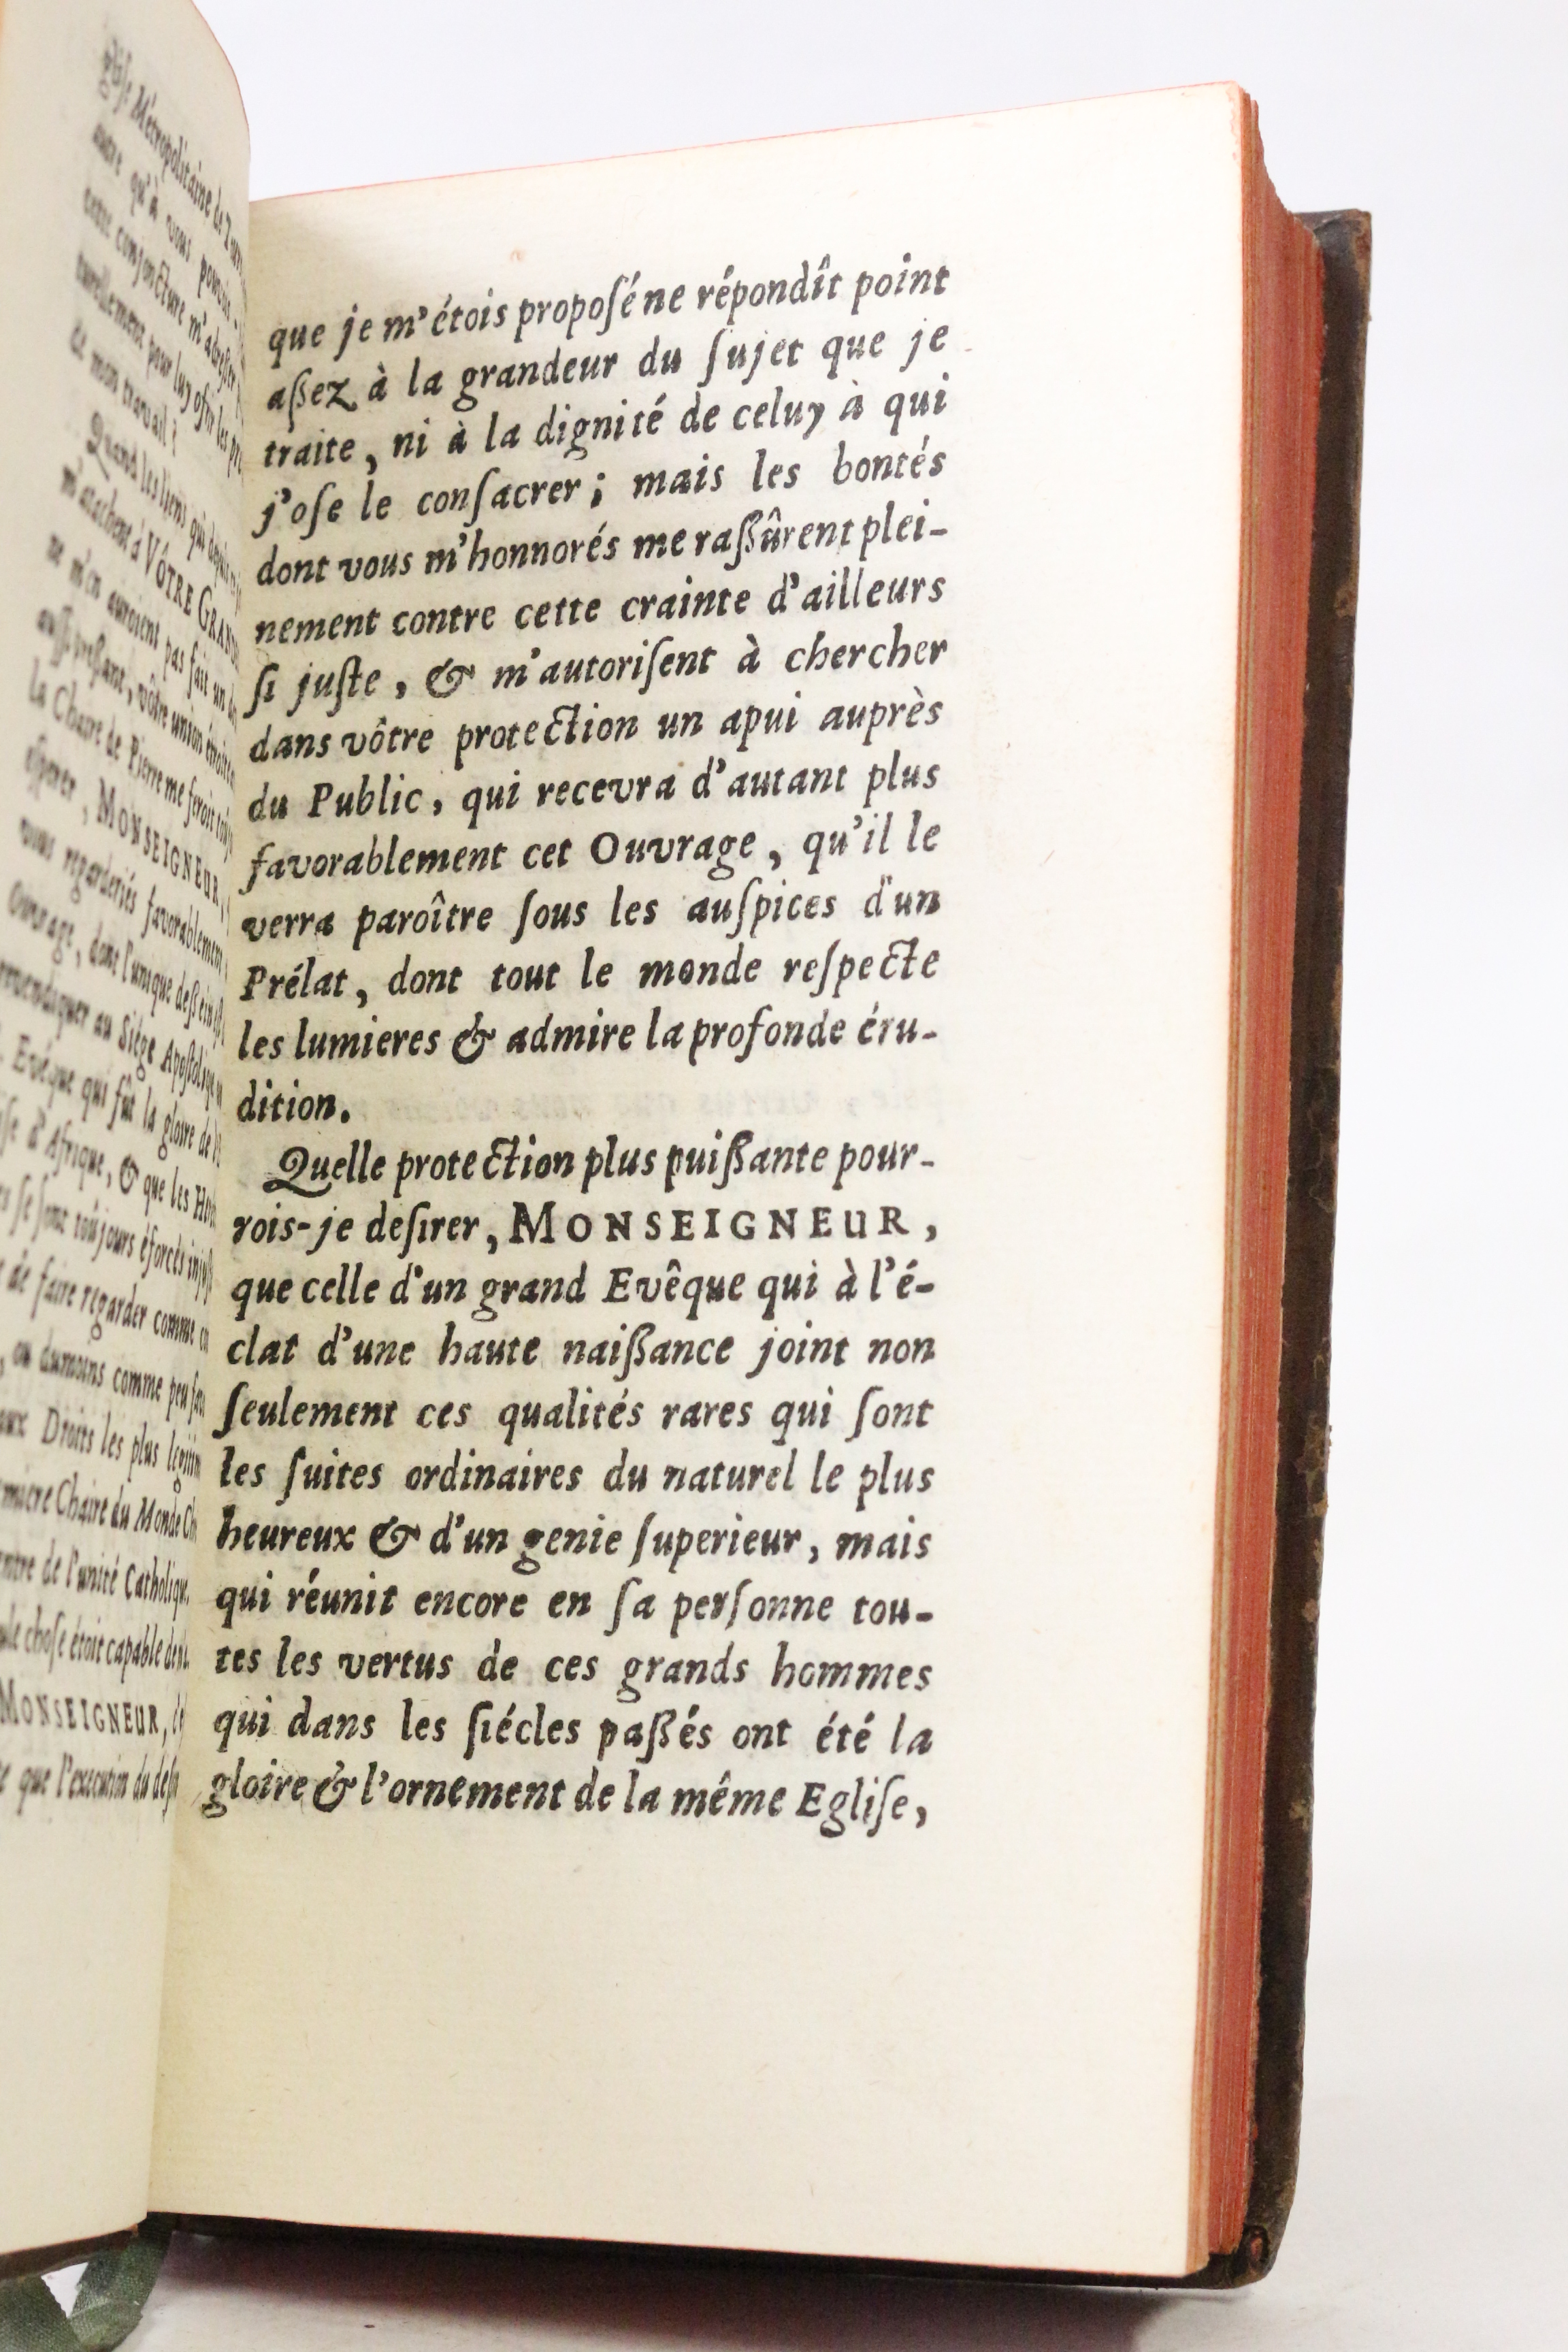 glise Métropolitaine de
autre qu'à vous
cette conjoncture m'adresser
turellement pour luy ofrir les
ce mon travail ?
Quand les liens qui depuis
m'atachent à VÔTRE
ne m'en auroient pas fait un
aussi pressant, vôtre union étroite
la Chaire de Pierre me feroit
esperer, MONSEIGNEUR,
vous regarderiés
Ouvrage, dont l'unique dessein
revendiquer au Siége
Evêque qui fût la gloire de
d'Afrique, & que les
se sont toûjours éforcés
de faire regarder comme
ou dumoins comme peu
aux Droits les plus
Chaire du Monde
de l'unité Catholique.
chose étoit capable de
MONSEIGNEUR,
que l'execution du
que je m'étois proposé ne répondît point
aſſez à la grandeur du ſujet que je
traite, ni à la dignité de celuy à qui
j'oſe le conſacrer ; mais les bontés
dont vous m'honnorés me raſſûrent plei-
nement contre cette crainte d'ailleurs
ſi juſte, & m'autoriſent à chercher
dans vôtre protection un apui auprès
du Public, qui recevra d'autant plus
favorablement cet Ouvrage, qu'il le
verra paroître ſous les auſpices d'un
Prélat, dont tout le monde reſpecte
les lumieres & admire la profonde éru-
dition.
Quelle protection plus puiſſante pour-
rois-je deſirer, MONSEIGNEUR,
que celle d'un grand Evêque qui à l'é-
clat d'une haute naiſſance joint non
ſeulement ces qualités rares qui ſont
les ſuites ordinaires du naturel le plus
heureux & d'un genie ſuperieur, mais
qui réunit encore en ſa perſonne tou-
tes les vertus de ces grands hommes
qui dans les ſiécles paſſés ont été la
gloire & l'ornement de la même Egliſe,